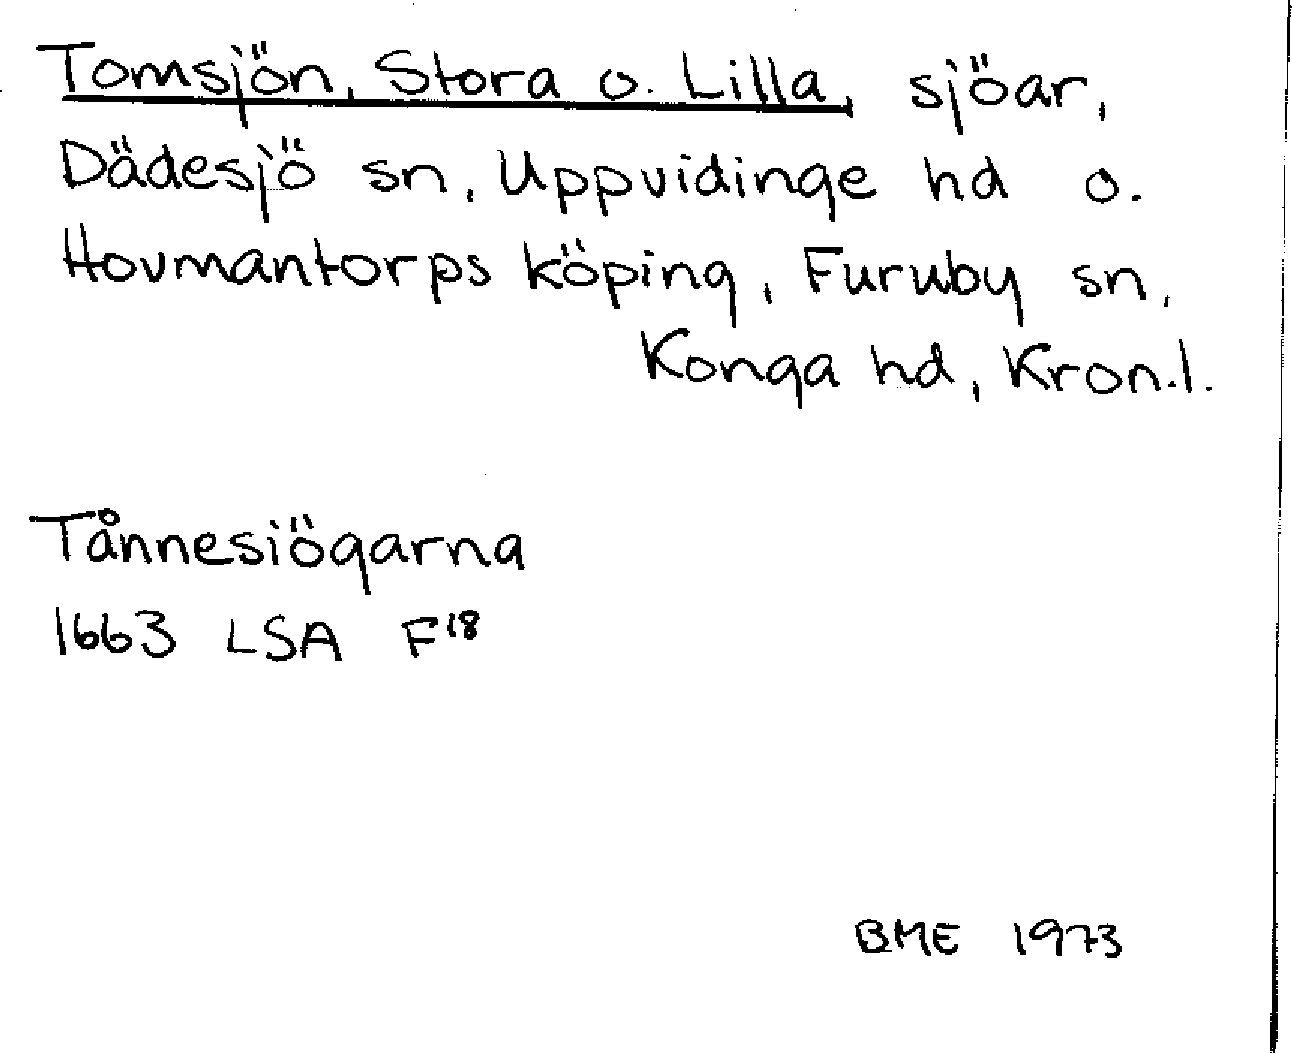 Tomsjön, Stora o. Lilla, sjöar,
Dädesjö sn, Uppvidinge hd o.
Hovmantorps köping, Furuby sn,
Konga hd, Kron.l.
Tånnesiögarna
1663 LSA F¹⁸
BME 1973